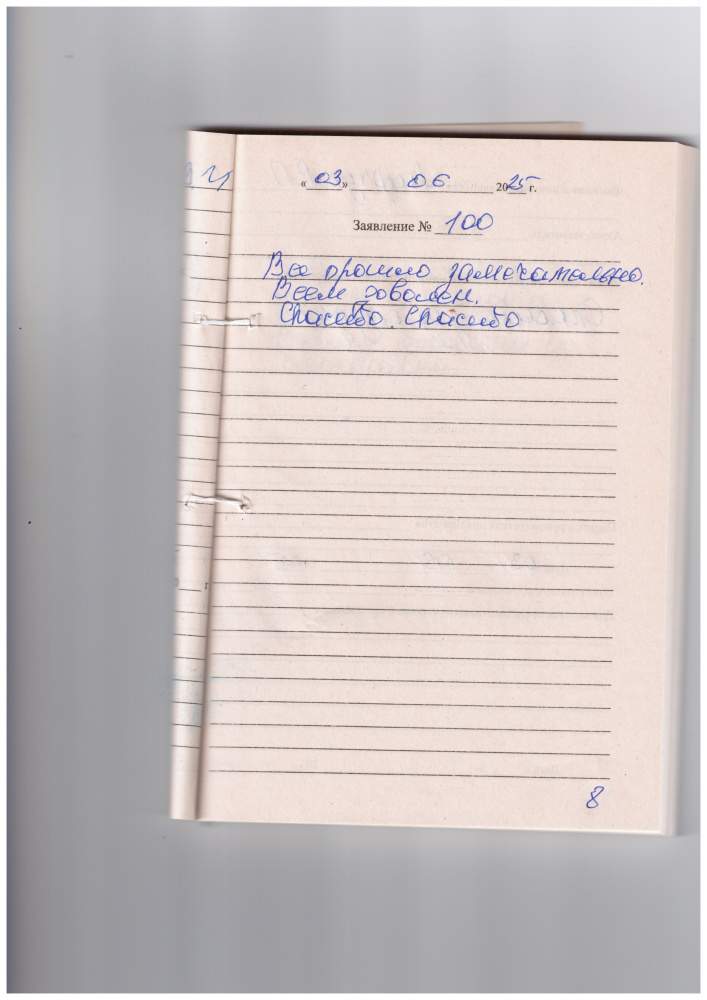 « 03 » 06 2025 г.
Заявление № 100
Все прошло замечательно.
Всем доволен.
Спасибо. Спасибо
8